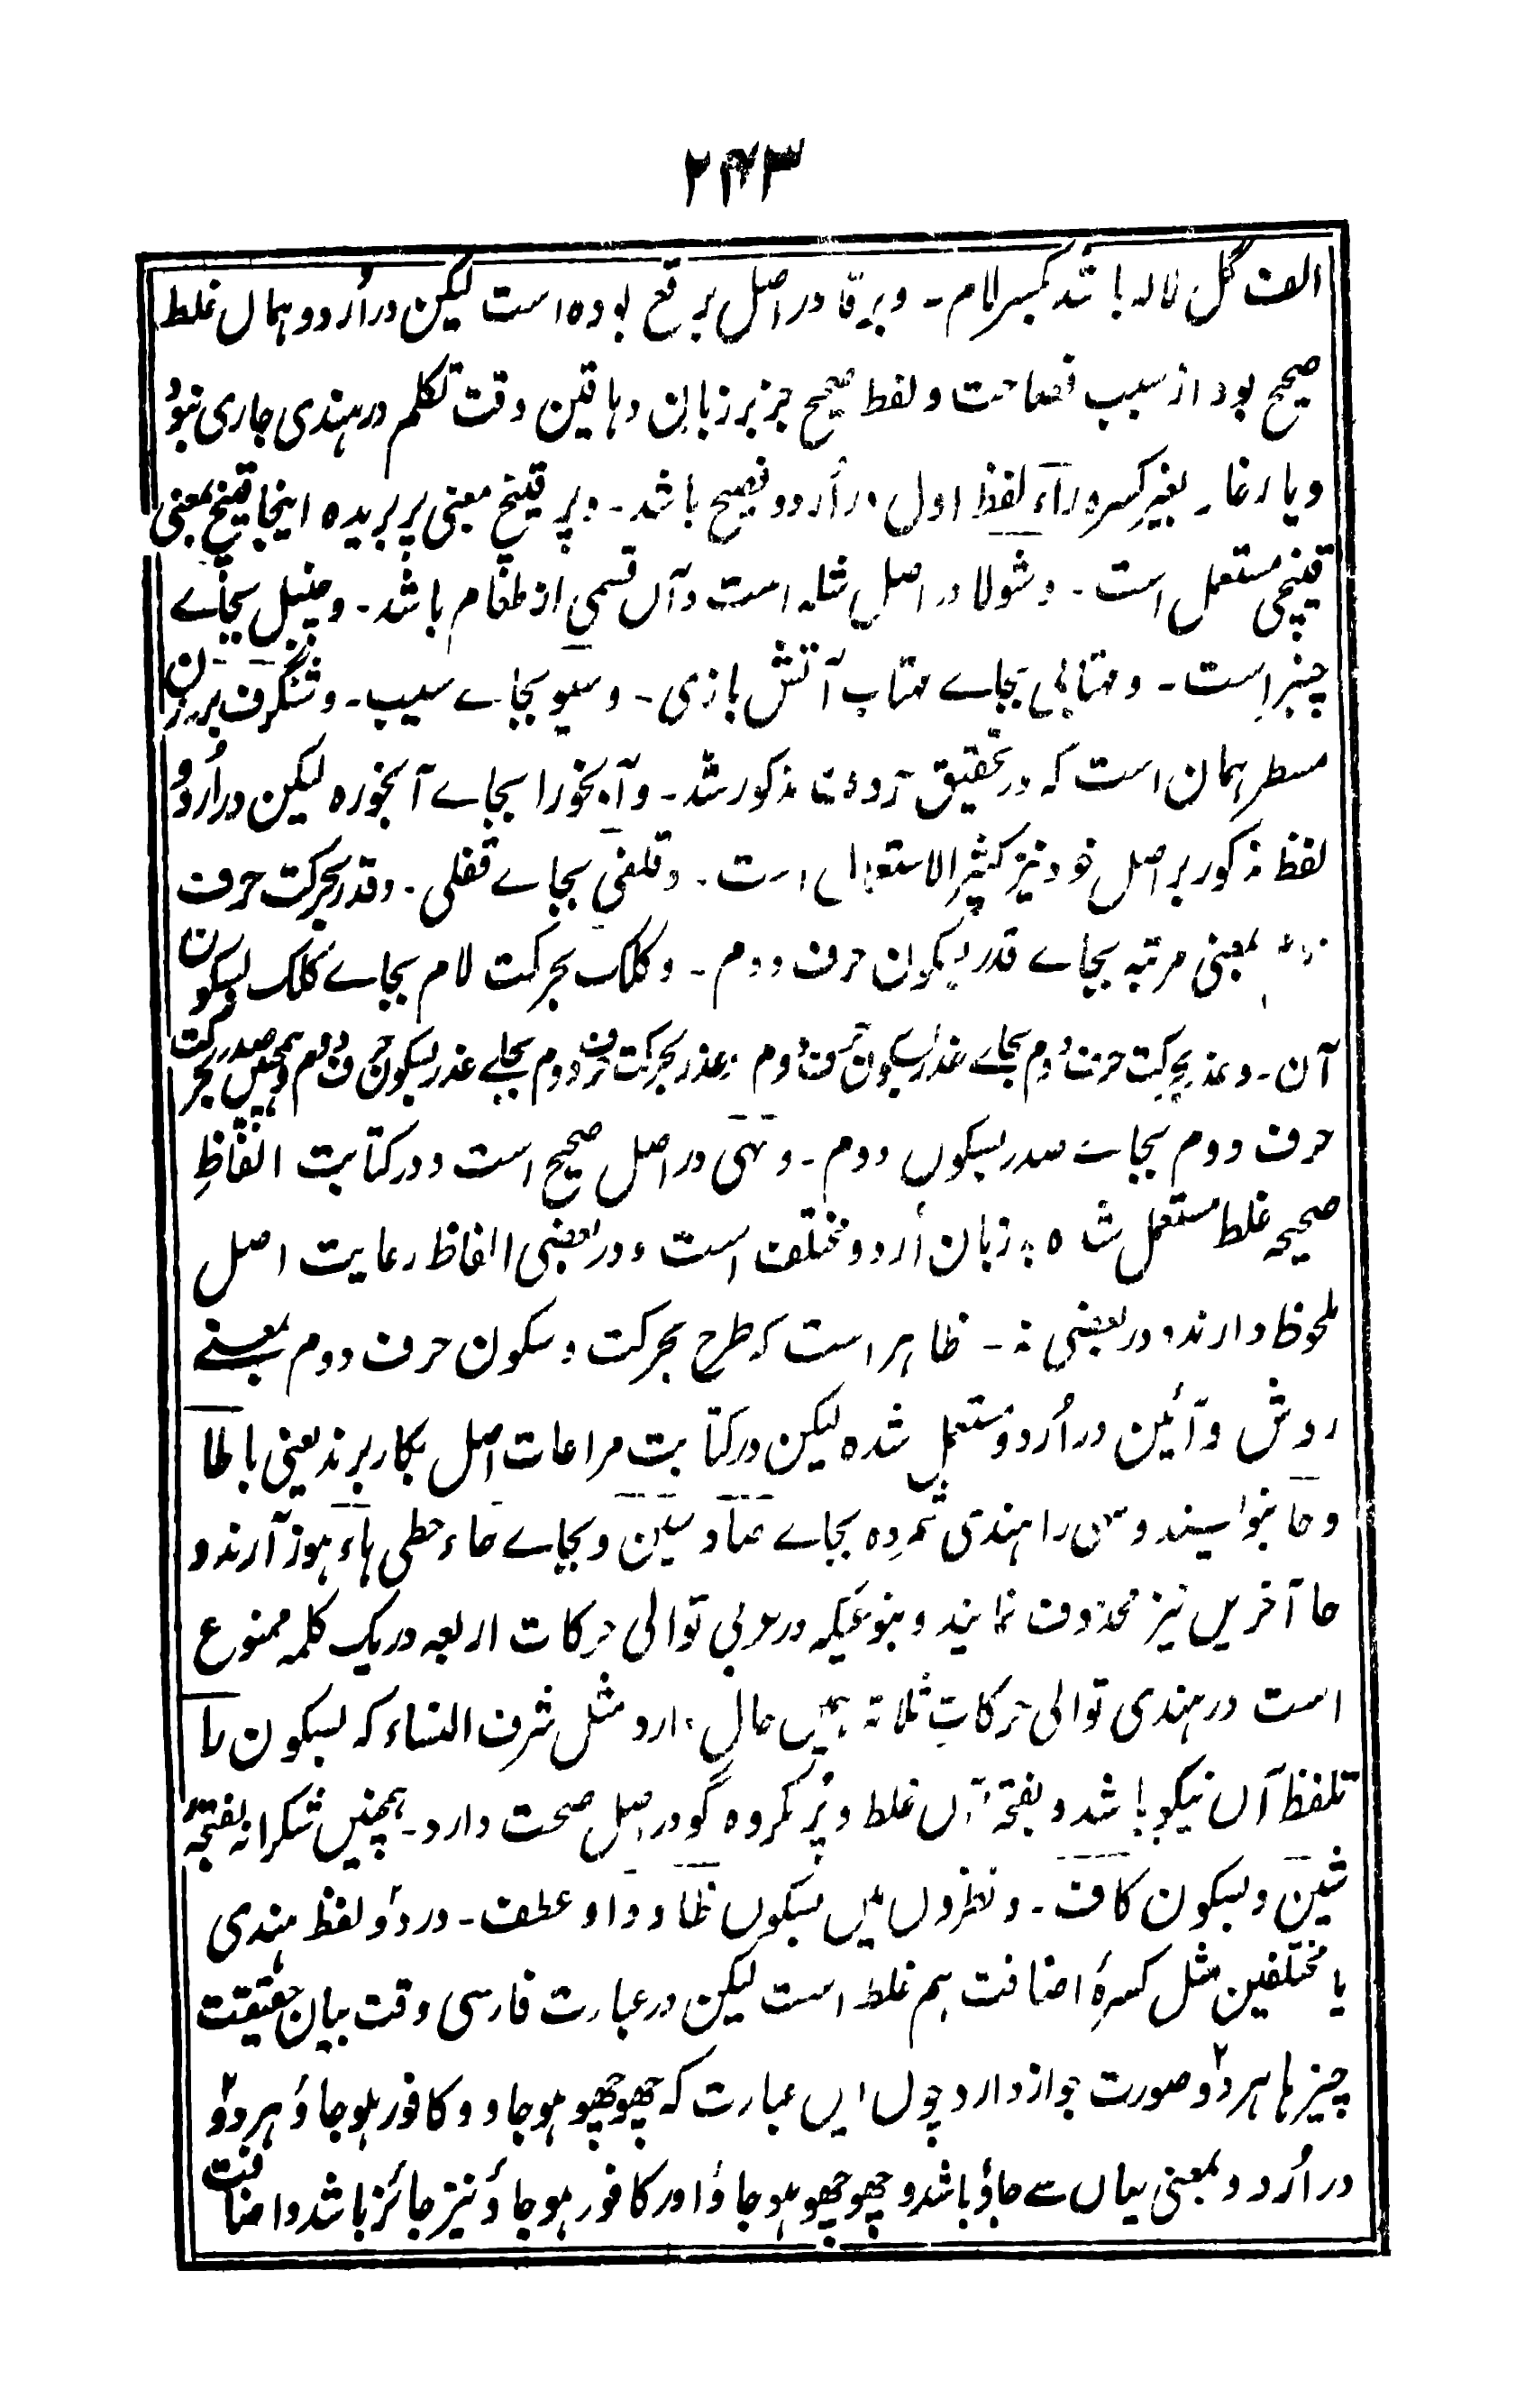 ۲۴۳
الف گل لالہ باشد بکسر لام۔ و برقا در اصل برقع بودہ است لیکن در اُردو ہماں غلط
صحیح بود از سبب فصاحت و لفظ صحیح جز بر زبان دہاقین وقت تکلم در ہندی جاری نبوَد
و یار غار بغیر کسرہ راء لفظ اول در اُردو فصیح باشد۔ و پر قینچ معنی پر بریدہ اینجا قینچ بمعنی
قینچی مستعمل است۔ و شولا در اصل شلہ است و آں قسمی از طعام باشد۔ و چنبل بجاے
چنبر است۔ و مہتابی بجاے مہتاب آتش بازی۔ و سیو بجاے سیب۔ و شنگرف بر وزن
مسطر ہمان است کہ در تحقیق حروف مذکور شد۔ و آبخورا بجاے آبخورہ لیکن در اُردو
لفظ مذکور بر اصل خود نیز کثیر الاستعمال است۔ و قلفی بجاے قفلی۔ و قدر بحرکت حرف
دوم بمعنی مرتبہ بجاے قدر بسکون حرف دوم۔ و کلک بحرکت لام بجاے کلک بسکون
آن۔ و عذر بحرکت حرف دوم بجاے عذر بسکون حرف دوم و غدر بحرکت حرف دوم بجاے غدر بسکون حرف دوم و ہمچنیں صدر بحرکت
حرف دوم بجاے صدر بسکوں دوم۔ و سہی در اصل صحیح است و در کتابت الفاظِ
صحیحہ غلط مستعمل شدہ بزبان اُردو مختلف است و در بعضی الفاظ رعایت اصل
ملحوظ دارند و در بعضی نہ۔ ظاہر است کہ طرح بحرکت و سکون حرف دوم بمعنے
روش و آئین در اُردو مستعمل شدہ لیکن در کتابت مراعات اصل بکار برند یعنی با طا
و حا بنویسند و سہی را ہندی شمردہ بجاے صاد سین و بجاے حاء حطی ہاء ہوز آرند و
حا آخریں نیز محذوف نمایند و بنوعیکہ در عربی توالی حرکات اربعہ در یک کلمہ ممنوع
است در ہندی توالی حرکاتِ ثلاثہ ہمیں حال دارد مثل شرف النساء کہ بسکون را
تلفظ آں نیکو باشد و بفتحۂ آں غلط و پُر مکروہ گو در اصل صحت دارد۔ ہمچنیں شکرانہ بفتحۂ
شین و بسکون کاف۔ و نظروں میں بسکوں ظا و واو عطف۔ در دو لفظ ہندی
یا مختلفین مثل کسرۂ اضافت ہم غلط است لیکن در عبارت فارسی وقت بیان حقیقت
چیزہا ہر دو صورت جواز دارد چوں ایں عبارت کہ چھو چھو ہو جاو و کافور ہو جاؤ ہر دو
در اُردو بمعنی یہاں سے جاؤ باشد و چھو چھو ہو جاؤ اور کافور ہو جاؤ نیز جائز باشد و اضافت